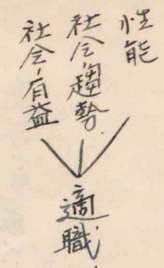 性能
社会趨勢
社会有益
適職